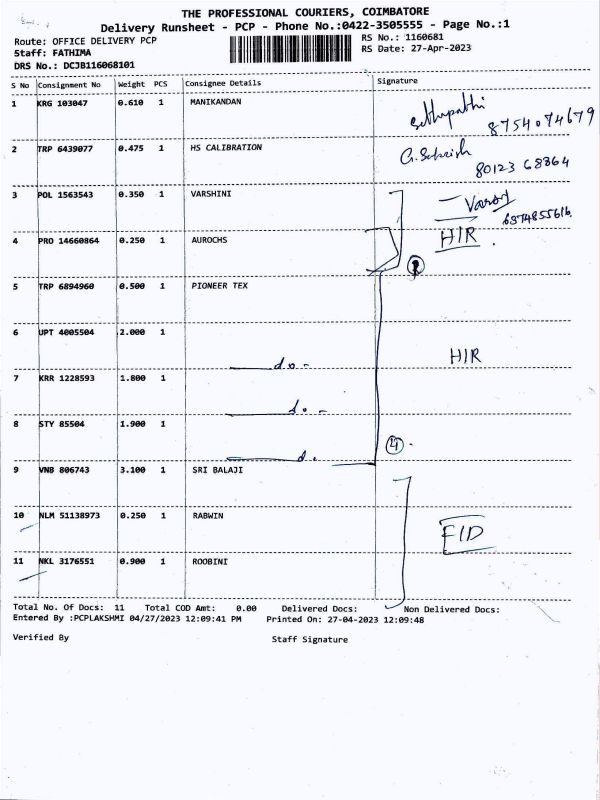 THE PROFESSIONAL COURIERS, COIMBATORE
Delivery Runsheet - PCP - Phone No.:0422-3505555 - Page No.:1
Route: OFFICE DELIVERY PCP RS No.: 1160681
Staff: FATHIMA RS Date: 27-Apr-2023
DRS No.: DCJB116068101
S No Consignment No Weight PCS Consignee Details Signature
1 KRG 103047 0.610 1 MANIKANDAN
8754074679
2 TRP 6439077 0.475 1 HS CALIBRATION
80123 68864
3 POL 1563543 0.350 1 VARSHINI
6374855616
4 PRO 14660864 0.250 1 AUROCHS HIR
2
5 TRP 6894960 0.500 1 PIONEER TEX
6 UPT 4005504 2.000 1
do - HIR
7 KRR 1228593 1.800 1
do. -
8 STY 85504 1.900 1
4
d.
9 VNB 806743 3.100 1 SRI BALAJI
10 NLM 51138973 0.250 1 RABWIN
FID
11 NKL 3176551 0.900 1 ROOBINI
Total No. Of Docs: 11 Total COD Amt: 0.00 Delivered Docs: Non Delivered Docs:
Entered By :PCPLAKSHMI 04/27/2023 12:09:41 PM Printed On: 27-04-2023 12:09:48
Verified By Staff Signature